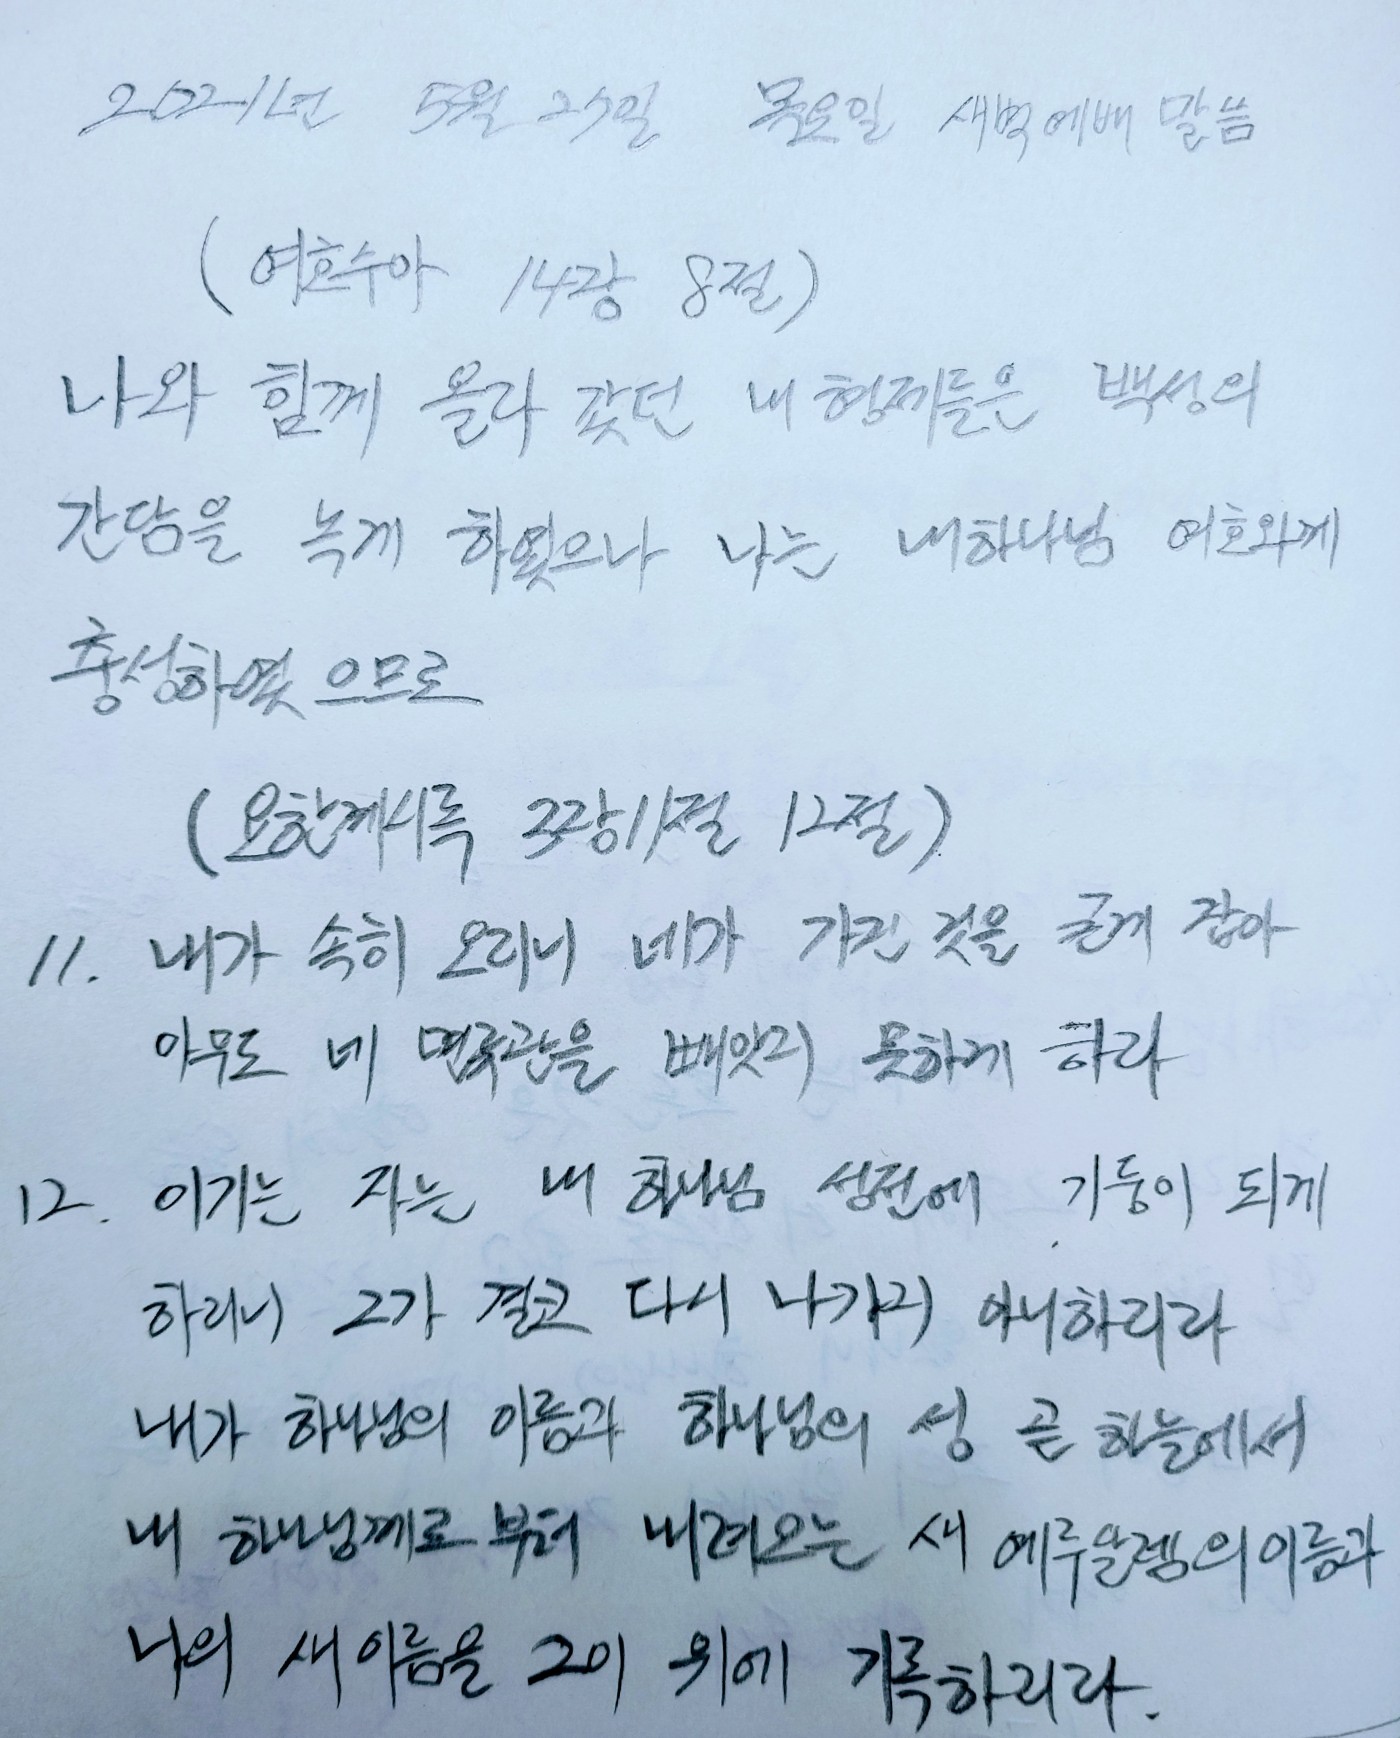 2021년 5월 27일 목요일 새벽예배 말씀
(여호수아 14장 8절)
나와 함께 올라 갔던 내 형제들은 백성의
간담을 녹게 하였으나 나는 내하나님 여호와께
충성하였으므로
(요한계시록 3장11절 12절)
11. 내가 속히 오리니 네가 가진 것을 굳게 잡아
아무도 네 면류관을 빼앗지 못하게 하라
12. 이기는 자는 내 하나님 성전에 기둥이 되게
하리니 그가 결코 다시 나가지 아니하리라
내가 하나님의 이름과 하나님의 성 곧 하늘에서
내 하나님께로 부터 내려오는 새 예루살렘의 이름과
나의 새이름을 그이 위에 기록하리라.